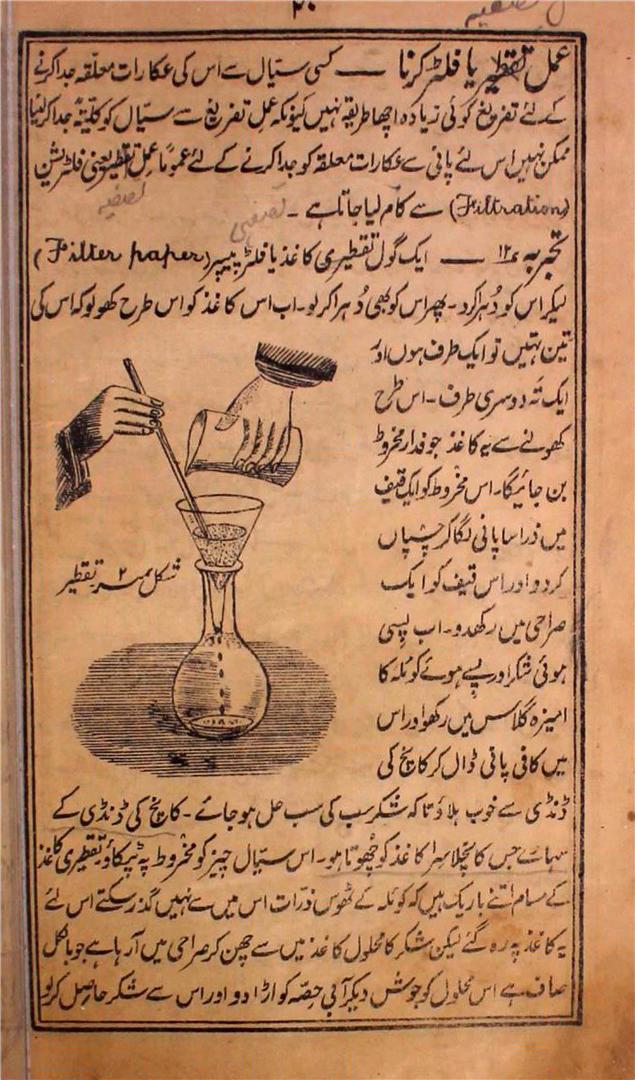 ۲۰
عمل تقطیر یا فلٹر کرنا — کسی سیّال سے اس کی عکارات معلّقہ جدا کرنے
کے لئے تفریغ کوئی زیادہ اچھا طریقہ نہیں کیونکہ عمل تفریغ سے سیّال کو کلیّتہً جدا کر لینا
ممکن نہیں اس لئے پانی سے عکارات معلقہ کو جدا کرنے کے لئے عموماً عمل تقطیر یعنی فلٹریشن
تصفیہ
(Filtration) سے کام لیا جاتا ہے۔
تجربہ ۱۲ — ایک گول تقطیری کاغذ یا فلٹر پیپر (Filter paper)
لیکر اس کو دُہرا کرد۔ پھر اس کو بھی دُہرا کر لو۔ اب اس کاغذ کو اس طرح کھولو کہ اس کی
تین تہیں تو ایک طرف ہوں اور
ایک تہ دوسری طرف۔ اس طرح
کھولنے سے یہ کاغذ جوفدار مخروط
بن جائیگا۔ اس مخروط کو ایک قیف
میں ذرا سا پانی لگا کر چسپاں
کر دو اور اس قیف کو ایک
صراحی میں رکھدو۔ اب پسی
ہوئی شکر اور پسے ہوئے کوئلہ کا
امیزہ گلاس میں رکھو اور اس
میں کافی پانی ڈال کر کانچ کی
شکل نمبر ۲ تقطیر
ڈنڈی سے خوب ہلاؤ تا کہ شکر سب کی سب حل ہو جائے۔ کانچ کی ڈنڈی کے
سہارے جس کا نچلا سرا کاغذ کو چھوتا ہو۔ اس سیّال چیز کو مخروط پہ ٹپکاؤ تقطیری کاغذ
کے مسام اتنے باریک ہیں کہ کوئلہ کے ٹھوس ذرّات اس میں سے نہیں گذر سکتے اس لئے
یہ کاغذ پہ رہ گئے لیکن شکر کا محلول کاغذ میں سے چھن کر صراحی میں آ رہا ہے جو بالکل
صاف ہے اس محلول کو جوش دیکر آبی حِصّہ کو اڑا دو اور اس سے شکر حاصل کر لو